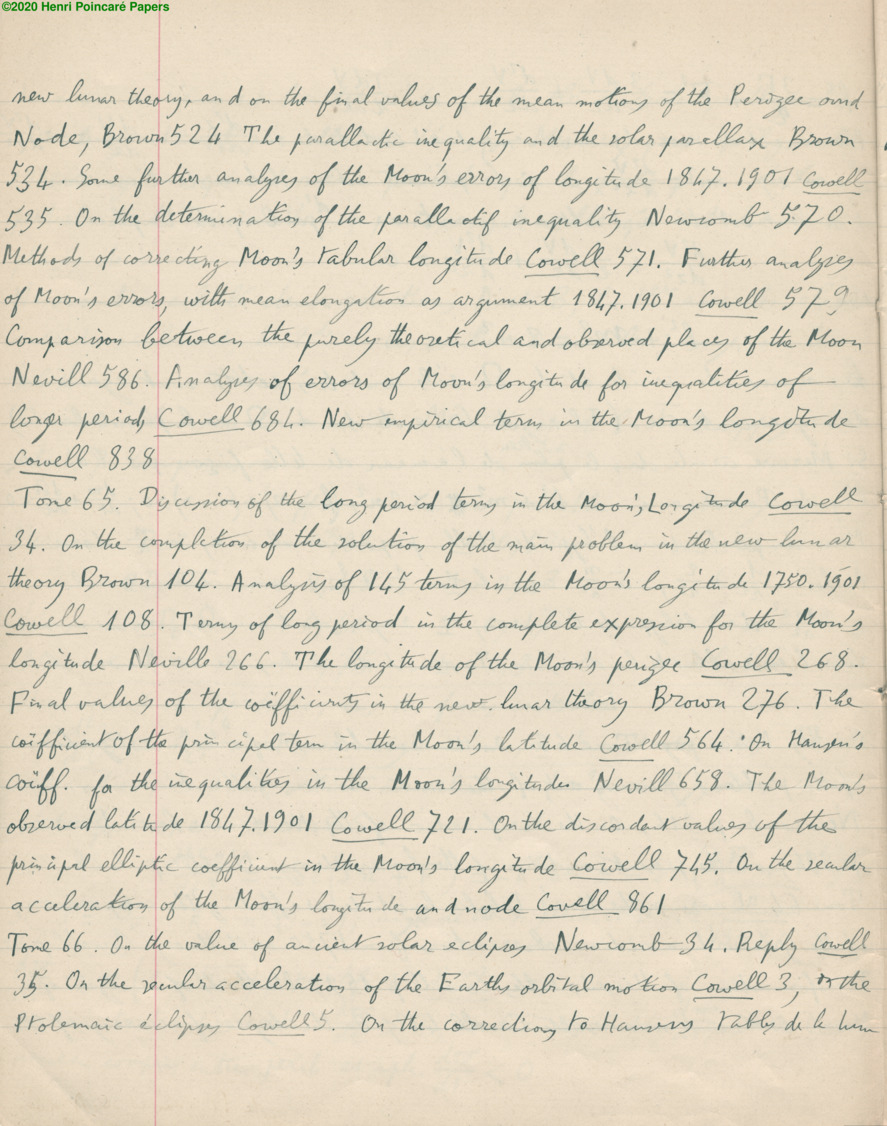 ©2020 Henri Poincaré Papers
new lunar theory, and on the final values of the mean motions of the Perigee and
Node, Brown 524 The parallactic inequality and the solar parallax Brown
534. Some further analyses of the Moon's errors of longitude 1847.1901 Cowell
535. On the determination of the parallactif inequality Newcomb 570.
Methods of correcting Moon's tabular longitude Cowell 571. Further analyses
of Moon's errors, with mean elongation as argument 1847.1901 Cowell 579
Comparison between the purely theoretical and observed places of the Moon
Nevill 586. Analyses of errors of Moon's longitude for inequalities of
longer periods Cowell 684. New empirical term in the Moon's longitude
Cowell 838
Tome 65. Discussion of the long period terms in the Moon's Longitude Cowell
34. On the completion of the solution of the main problem in the new lunar
theory Brown 104. Analysis of 145 terms in the Moon's longitude 1750.1901
Cowell 108. Terms of long period in the complete expression for the Moon's
longitude Neville 266. The longitude of the Moon's perigee Cowell 268.
Final values of the coëfficients in the new lunar theory Brown 276. The
coëfficient of the principal term in the Moon's latitude Cowell 564. On Hansen's
coëff. for the inequalities in the Moon's longitudes Nevill 658. The Moon's
observed latitude 1847.1901 Cowell 721. On the discordant values of the
principal elliptic coefficient in the Moon's longitude Cowell 745. On the secular
acceleration of the Moon's longitude and node Cowell 861
Tome 66. On the value of ancient solar eclipses Newcomb 34. Reply Cowell
35. On the secular acceleration of the Earths orbital motion Cowell 3, on the
Ptolemaic éclipses Cowell 5. On the corrections to Hansens tables de la lune